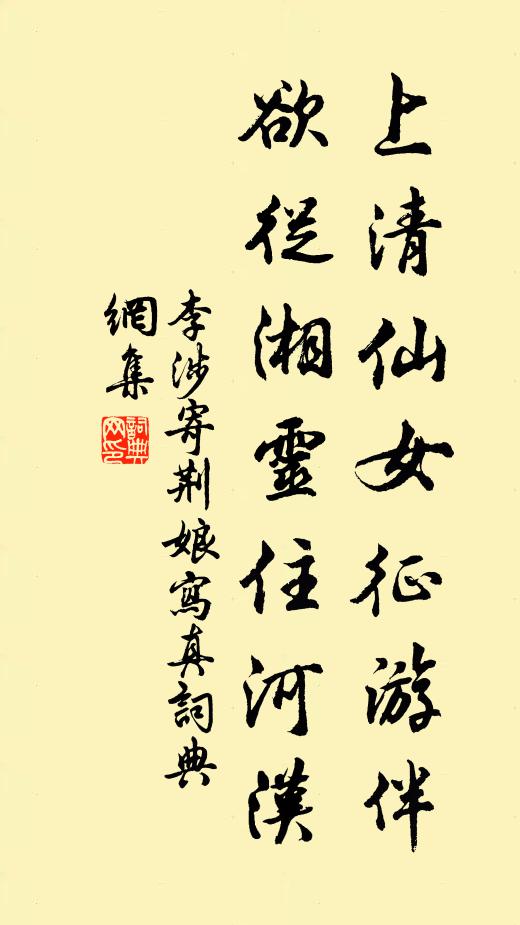 上清仙女征游伴
欲從湘靈住河漢
李涉寄荆娘寫真詞典
網集
詞典
网印